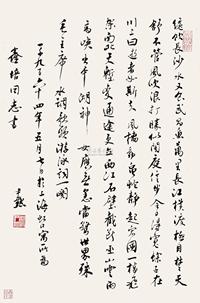 纔飲長沙水又食武昌魚萬里長江橫渡極目楚天
舒不管風吹浪打勝似閒庭信步今日得寬餘子在
川上曰逝者如斯夫風檣動龜蛇靜起宏圖一橋飛
架南北天塹變通途更立西江石壁截斷巫山雲雨
高峽出平湖神女應無恙當驚世界殊
毛主席水調歌頭游泳詞一闋
一千九百六十四年五月七日於上海虹口寓所為
鑫培同志書
尹默